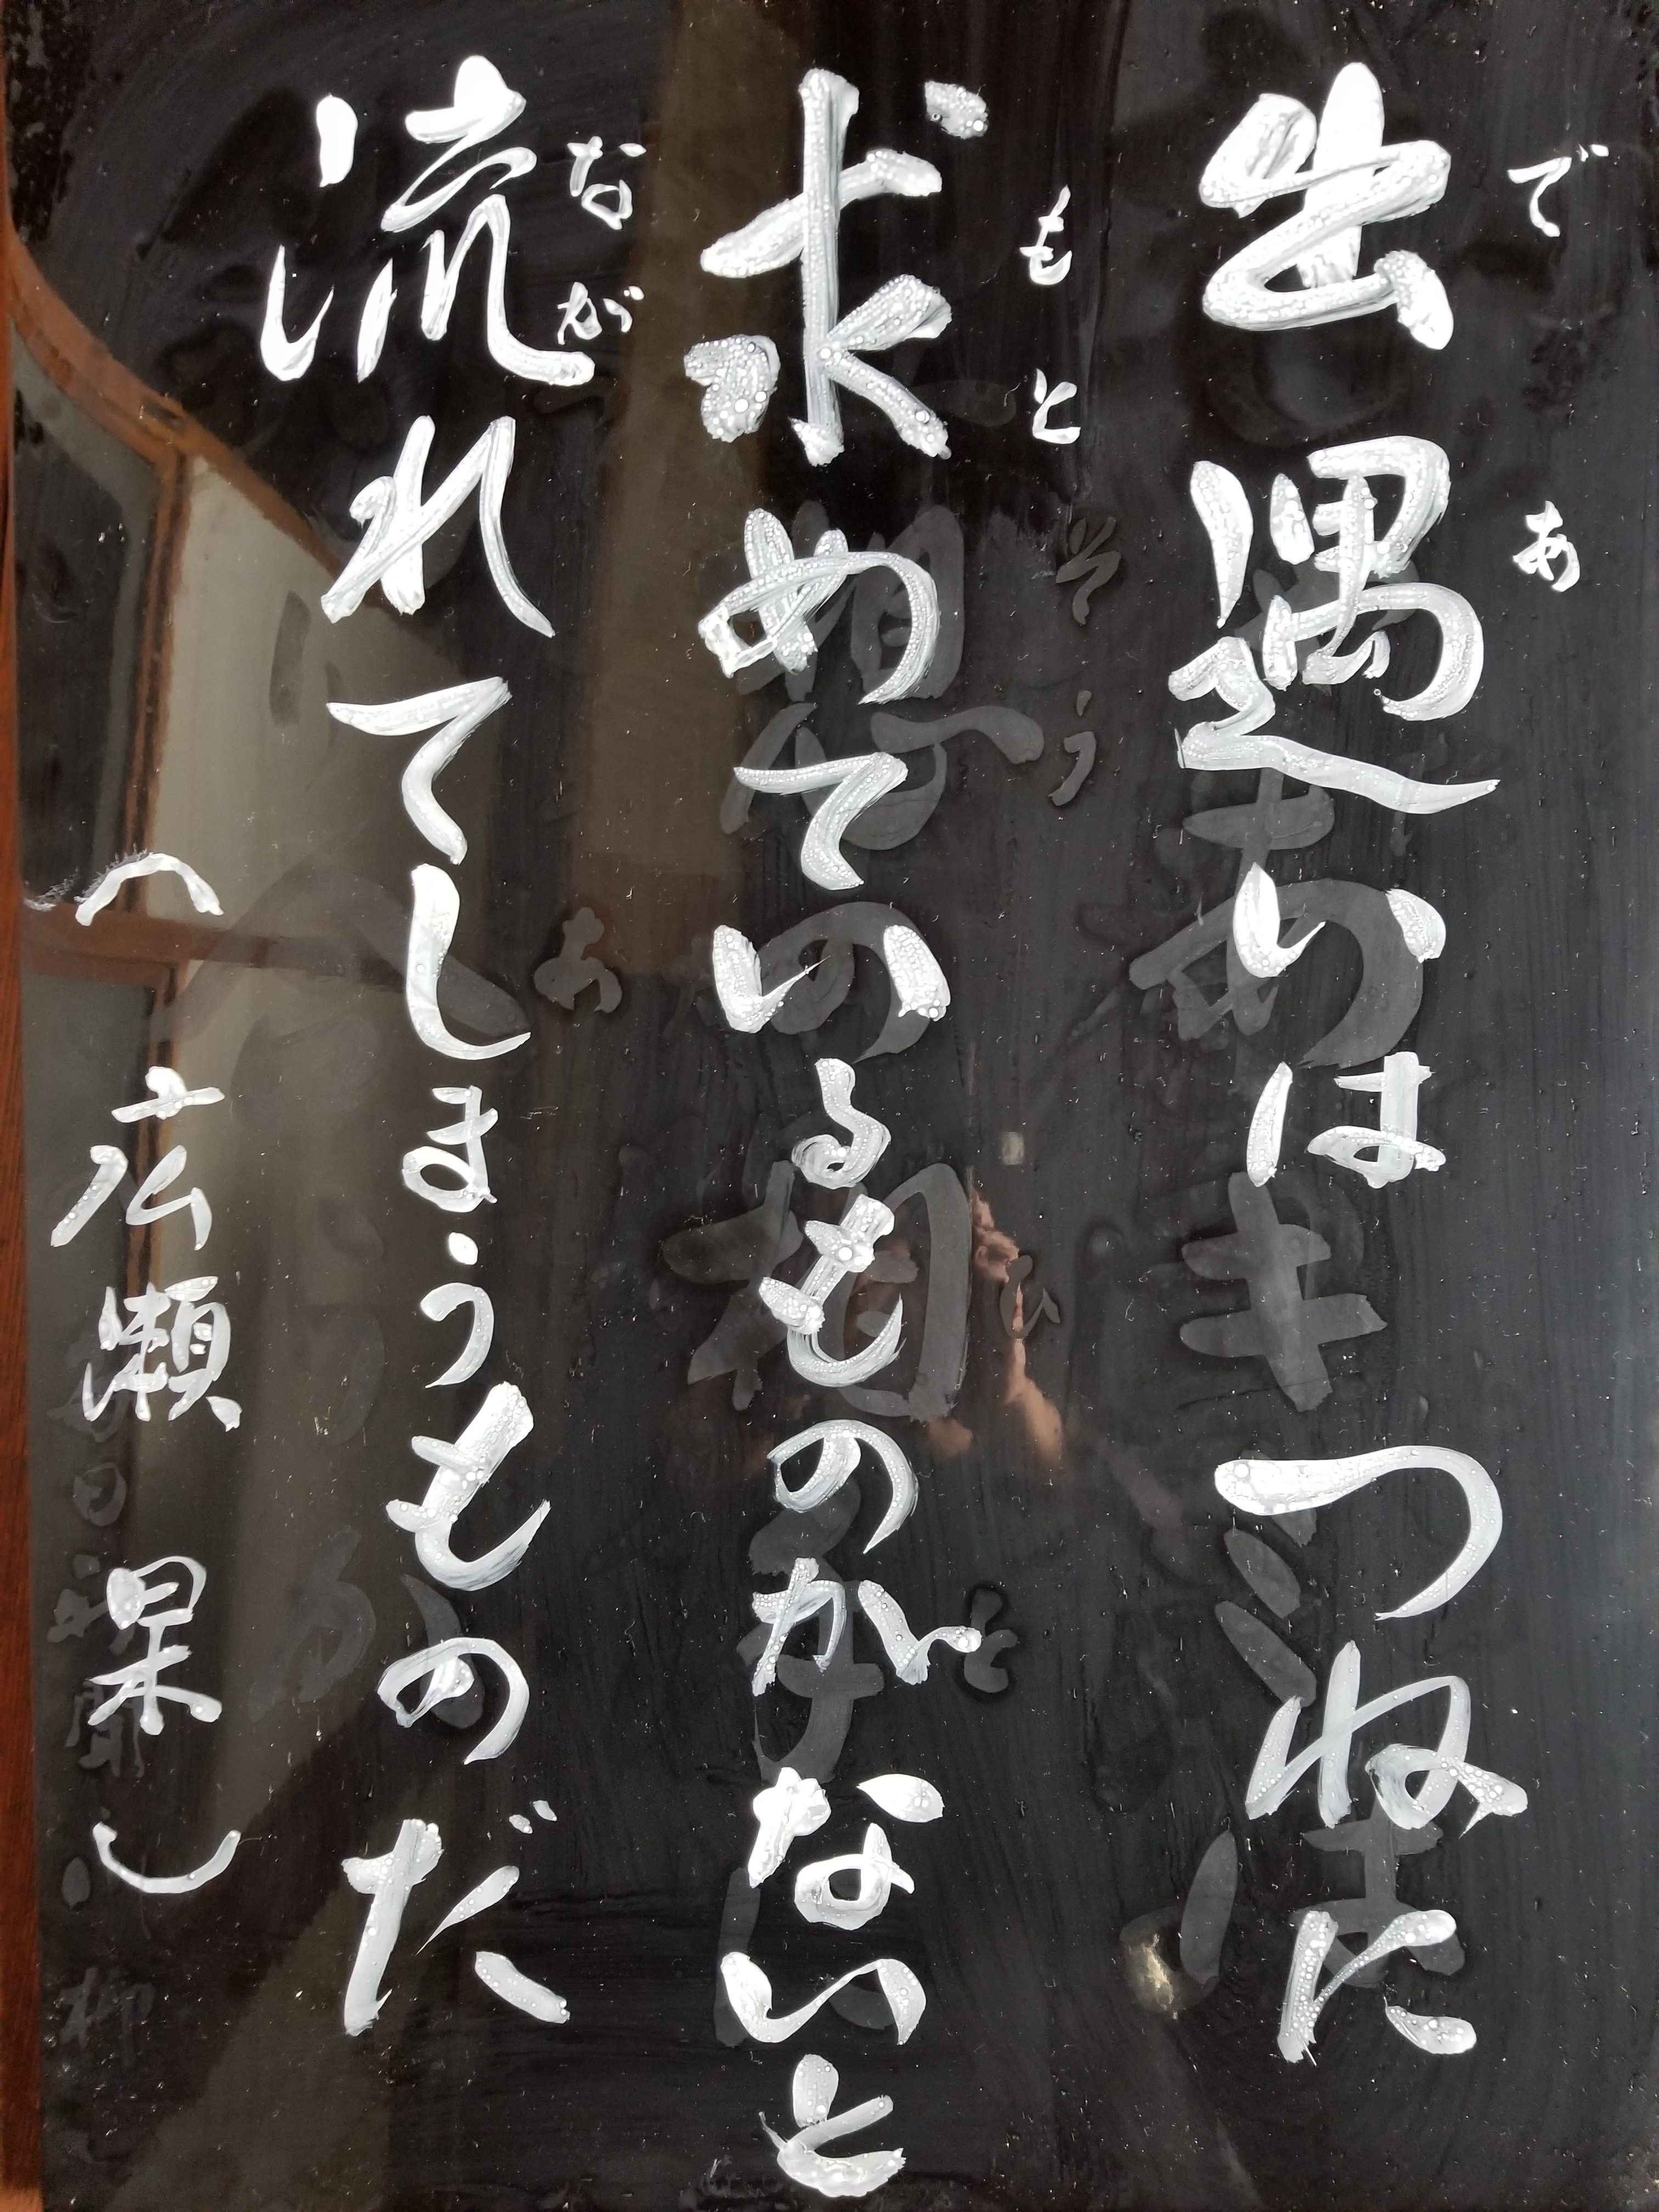 出遇いは つねに
求めているものがないと
流れてしまうものだ
（広瀬 杲）
で あ
もと
なが